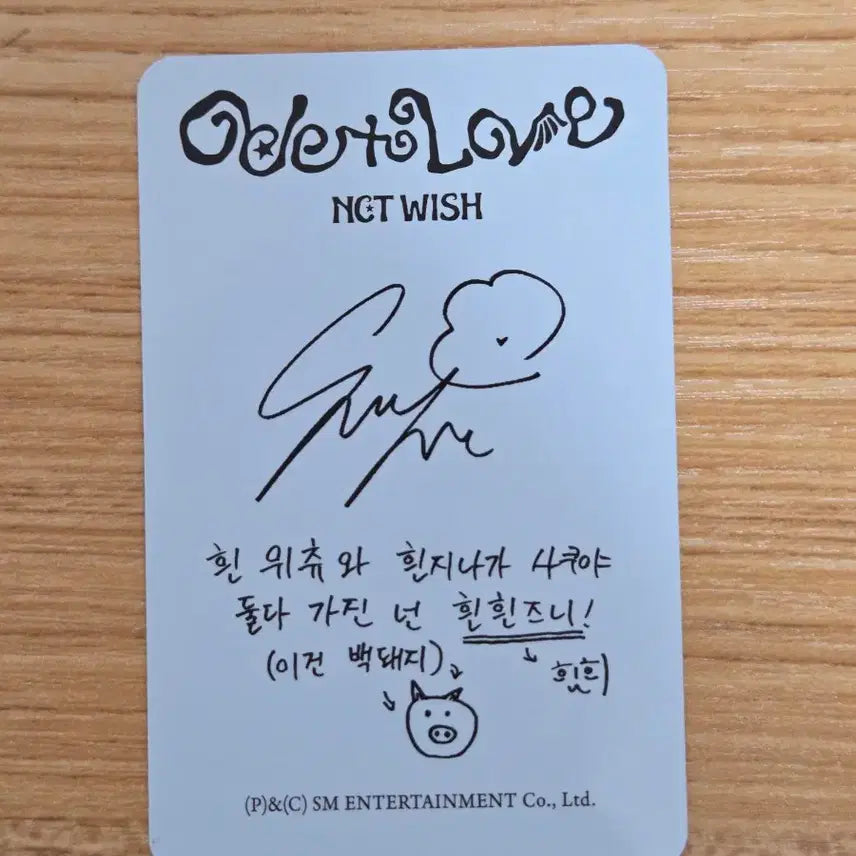 Ode to Love
NCT WISH
흰 위츄와 흰지나가 사쿠야
둘다 가진 넌 흰흰즈니!
(이건 백돼지)
(P)&(C) SM ENTERTAINMENT Co., Ltd.